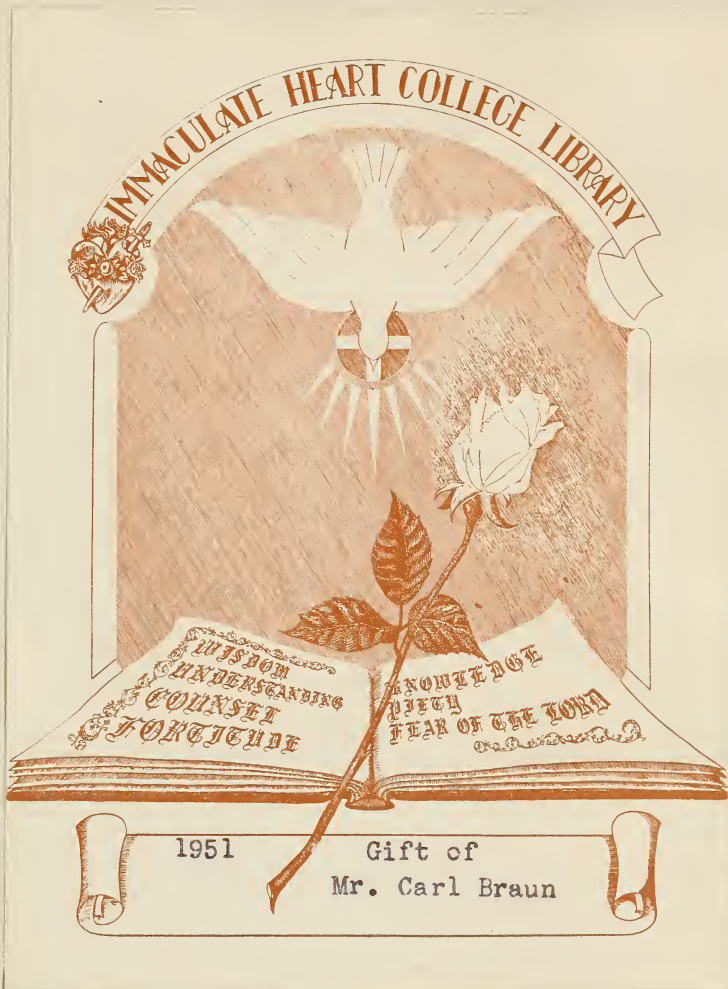 IMMACULATE HEART COLLEGE LIBRARY
WISDOM
UNDERSTANDING
COUNSEL
FORTITUDE
KNOWLEDGE
PIETY
FEAR OF THE LORD
1951 Gift of
Mr. Carl Braun